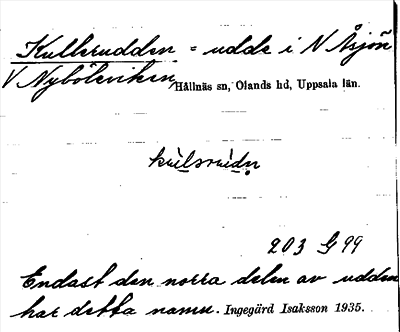 Kullerudden = udde i N Åsjön
V Nyböleviken Hållnäs sn, Olands hd, Uppsala län.
203 G 99
Endast den norra delen av udden
har detta namn. Ingegärd Isaksson 1935.